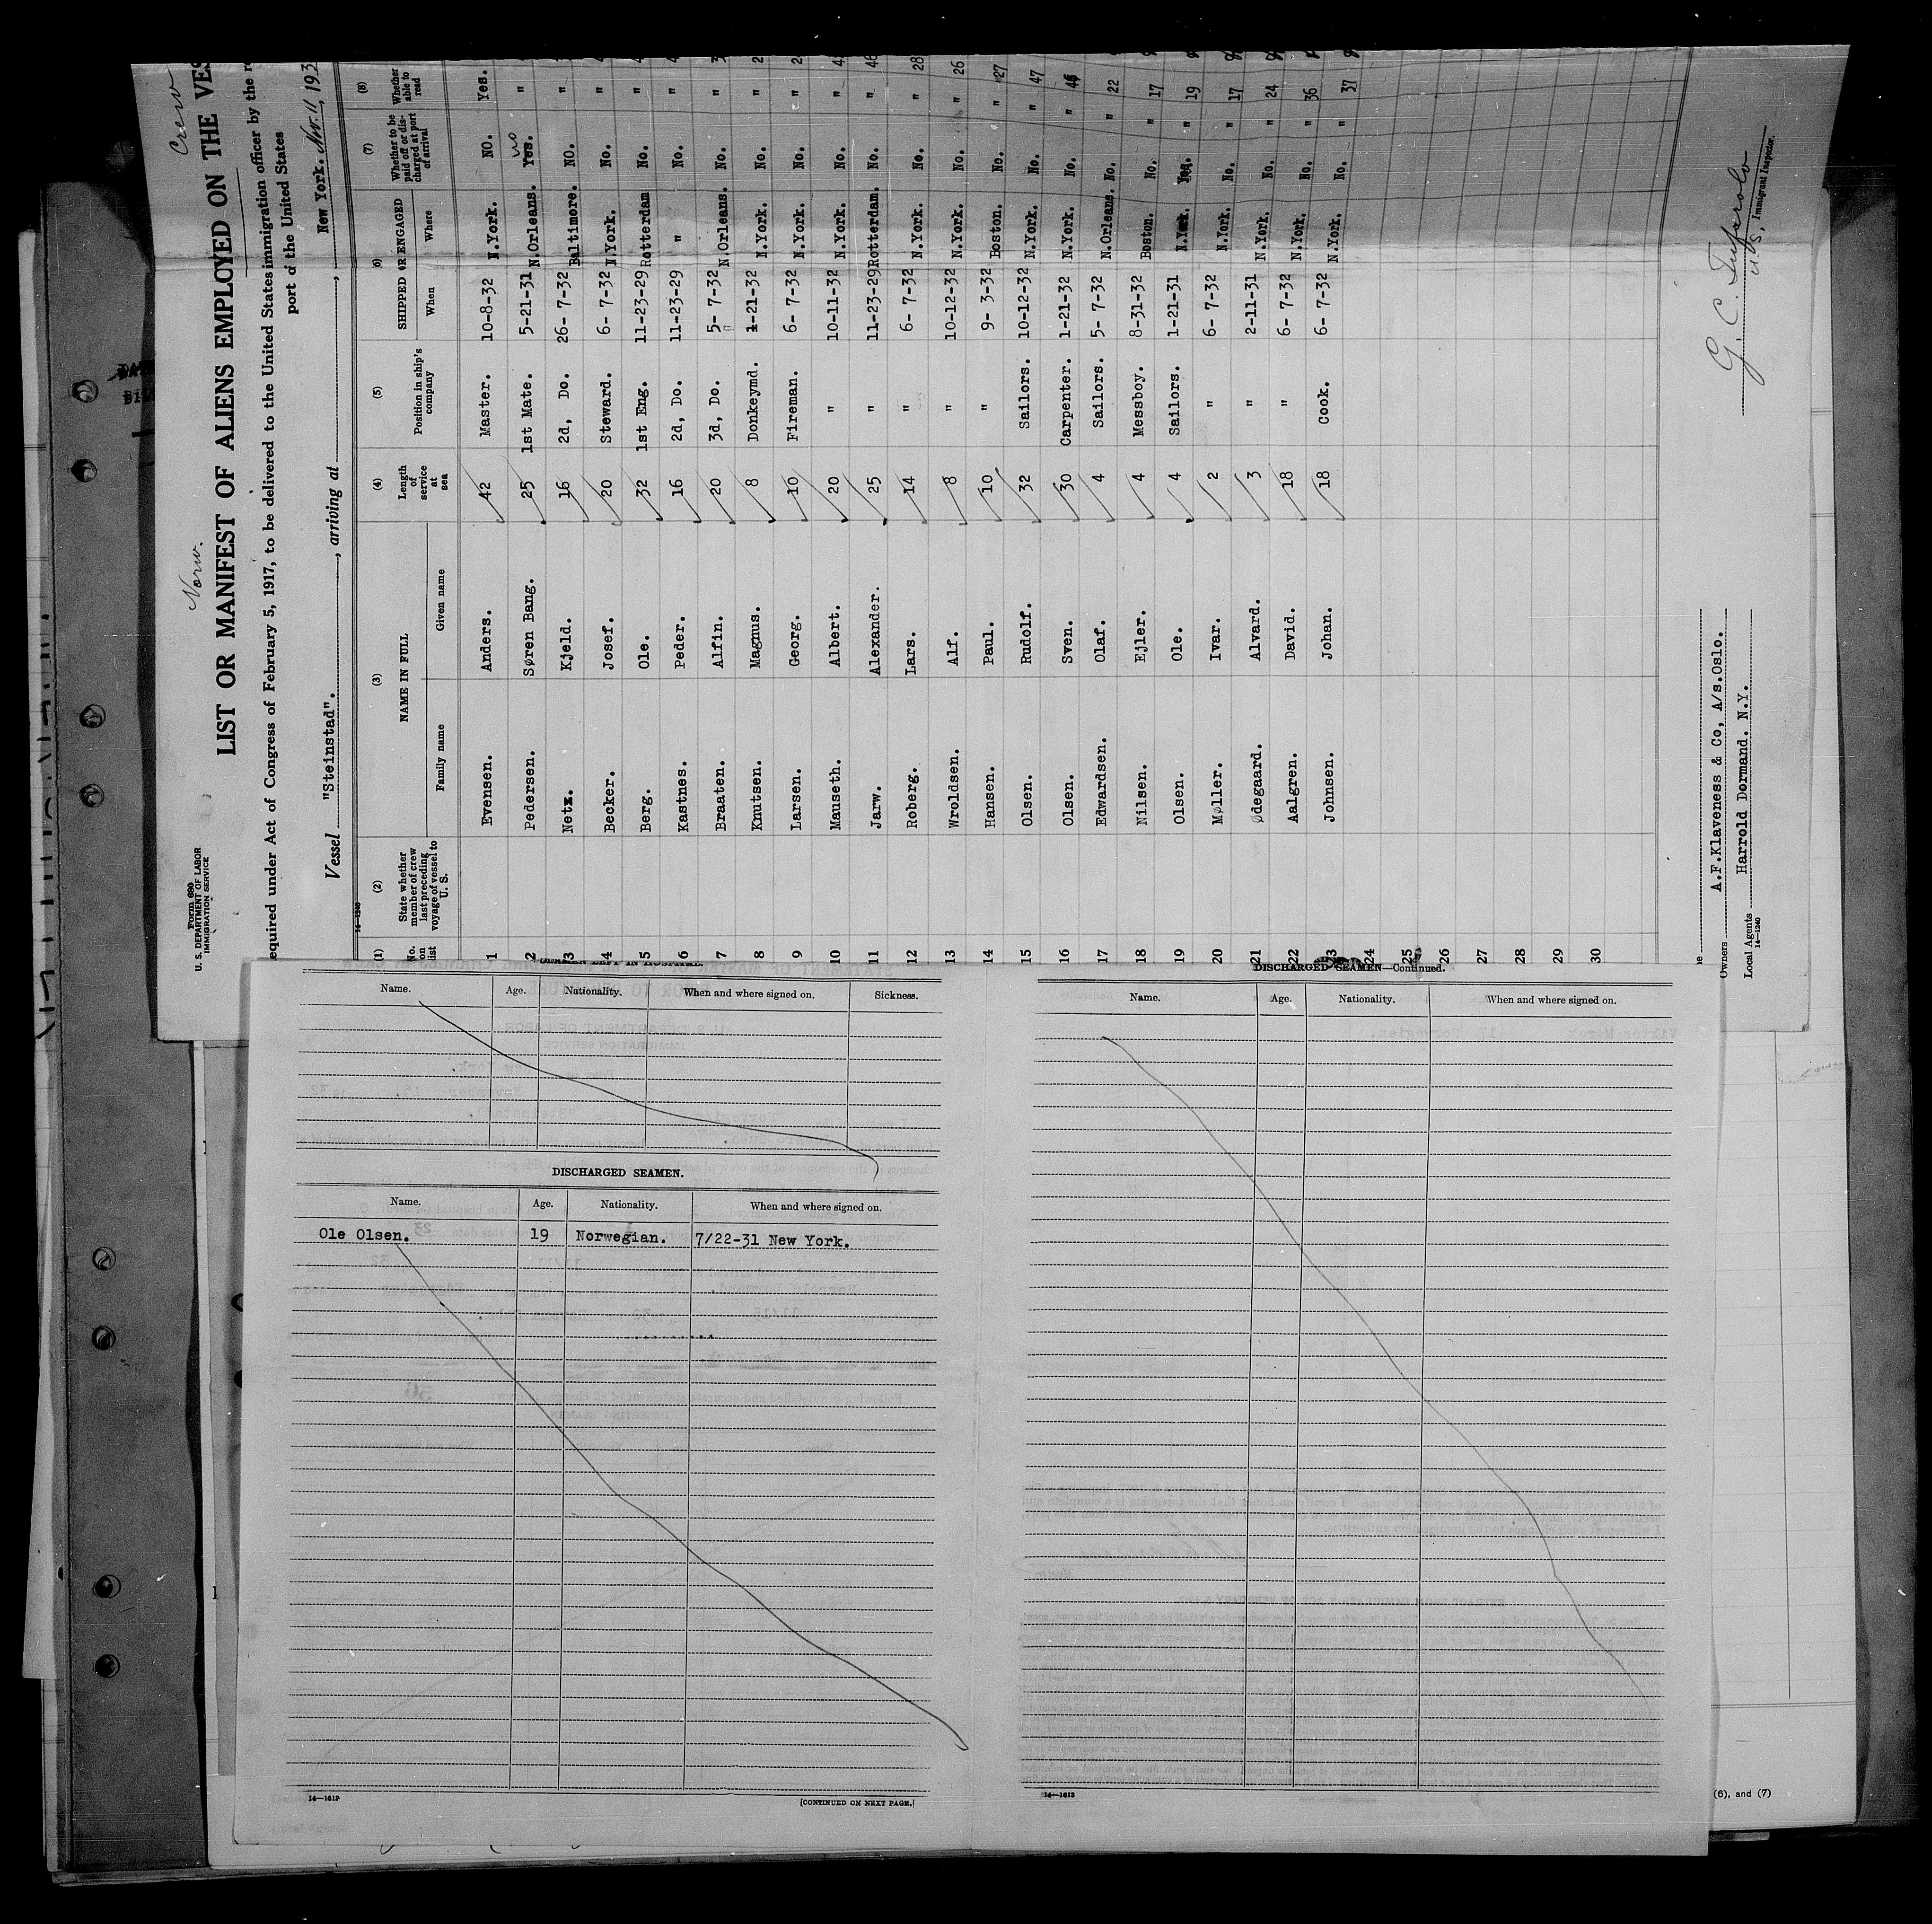 Crew
Norw.
Form 680
U. S. DEPARTMENT OF LABOR
IMMIGRATION SERVICE
LIST OR MANIFEST OF ALIENS EMPLOYED ON THE
equired under Act of Congress of February 5, 1917, to be delivered to the United States immigration officer by the
port of the United States
Vessel "Steinstad"., arriving at , New York. Nov. 11, 193
14-1240
(1) (2) (3) (4) (5) (6) (7) (8)
No. on list
State whether member of crew last preceding voyage of vessel to U. S.
NAME IN FULL
Family name Given name
Length of service at sea
Position in ship's company
SHIPPED OR ENGAGED
When Where
Whether to be paid off or discharged at port of arrival
Whether able to read
1 Evensen. Anders. 42 Master. 10-8-32 N.York. NO. Yes.
2 Pedersen. Søren Bang. 25 1st Mate. 5-21-31 N.Orleans. Yes. no "
3 Netz. Kjeld. 16 2d, Do. 26- 7-32 Baltimore. NO. "
4 Becker. Josef. 20 Steward. 6- 7-32 N.York. No. "
5 Berg. Ole. 32 1st Eng. 11-23-29 Rotterdam No. "
6 Kastnes. Peder. 16 2d, Do. 11-23-29 " No. "
7 Braaten. Alfin. 20 3d, Do. 5- 7-32 N.Orleans. No. "
8 Knutsen. Magnus. 8 Donkeymd. 1-21-32 N.York. No. "
9 Larsen. Georg. 10 Fireman. 6- 7-32 N.York. No. "
10 Mauseth. Albert. 20 " 10-11-32 N.York. No. "
11 Jarw. Alexander. 25 " 11-23-29 Rotterdam. No. " 46
12 Roberg. Lars. 14 " 6- 7-32 N.York. No. " 28
13 Wroldsen. Alf. 8 " 10-12-32 N.York. No. " 26
14 Hansen. Paul. 10 " 9- 3-32 Boston. No. " 27
15 Olsen. Rudolf. 32 Sailors. 10-12-32 N.York. No. " 47
16 Olsen. Sven. 30 Carpenter. 1-21-32 N.York. No. "
17 Edwardsen. Olaf. 4 Sailors. 5- 7-32 N.Orleans. No. " 22
18 Nilsen. Ejler. 4 Messboy. 8-31-32 Boston. No. " 17
19 Olsen. Ole. 4 Sailors. 1-21-31 N.York. Yes. " 19
20 Møller. Ivar. 2 " 6- 7-32 N.York. No. " 17
21 Ødegaard. Alvard. 3 " 2-11-31 N.York. No. " 24
22 Aalgren. David. 18 " 6- 7-32 N.York. No. " 36
23 Johnsen. Johan. 18 Cook. 6- 7-32 N.York. No. " 37
24
25
26
27
28
29
30
Owners A.F.Klaveness & Co, A/s.Oslo.
Local Agents Harrold Dormand. N.Y.
14-1240
Immigrant Inspector.
Name. Age. Nationality. When and where signed on. Sickness.
DISCHARGED SEAMEN.
Name. Age. Nationality. When and where signed on.
Ole Olsen. 19 Norwegian. 7/22-31 New York.
[CONTINUED ON NEXT PAGE.]
DISCHARGED SEAMEN—Continued.
Name. Age. Nationality. When and where signed on.
(6), and (7)